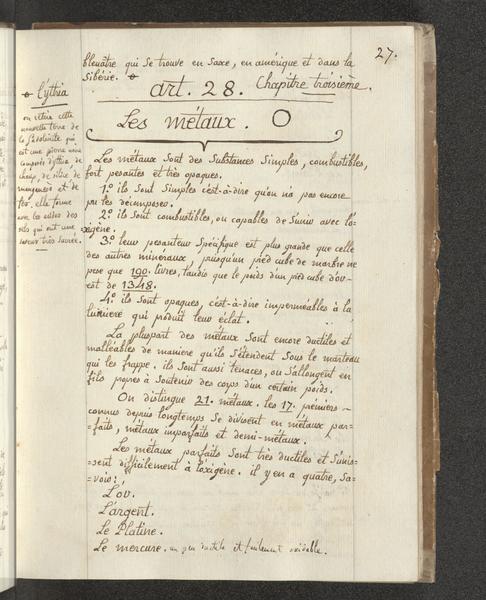 27.
bleuâtre qui se trouve en Saxe, en amérique et dans la
Sibérie.
art. 28. Chapitre troisième.
Les métaux.
l'ythia
on retire cette
nouvelle terre de
la qui
est une pierre
composée d'ythia, de
chaux, de silice, de
manganese et de
fer. elle forme
avec les acides des
sels qui ont une
saveur très sucrée.
Les métaux sont des Substances Simples, combustibles,
fort pesantes et très opaques.
1º ils sont Simples c'est-à-dire qu'on n'a pas encore
pu les décomposer.
2º ils sont combustibles, ou capables de S'unir avec l'o-
xigène.
3º leur pesanteur Spécifique est plus grande que celle
des autres minéraux, puisqu'un pied cube de marbre ne
pese que 190. livres, tandis que le poids d'un pied cube d'or
est de 1348.
4º ils sont opaques, c'est-à-dire impermeables à la
lumiere qui produit leur éclat.
La pluspart des métaux Sont encore ductiles et
malléables de maniere qu'ils S'étendent Sous le marteau
qui les frappe. ils Sont aussi tenaces, ou S'allongent en
fils propres à Soutenir des corps d'un certain poids.
On distingue 21. métaux. les 17. premiers
connus depuis longtemps Se divisent en métaux par-
faits, métaux imparfaits et demi-métaux.
Les métaux parfaits Sont très ductiles et S'unis-
=sent difficilement à l'oxigène. il y en a quatre, Sa-
=voir:
L'or.
L'argent.
Le Platine.
Le mercure. un peu ductile et facilement oxidable.